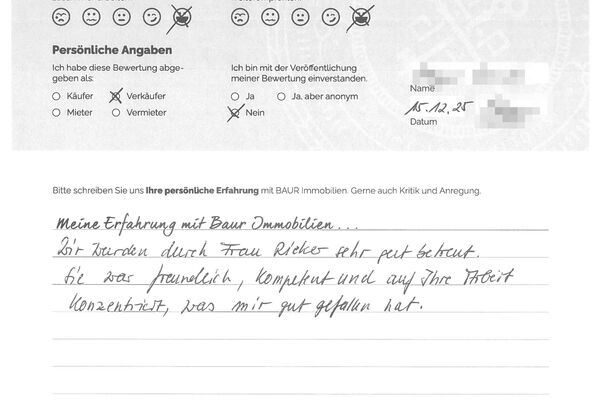 Persönliche Angaben
Ich habe diese Bewertung abge-
geben als:
Käufer
Verkäufer
Mieter
Vermieter
Ich bin mit der Veröffentlichung
meiner Bewertung einverstanden.
Ja
Ja, aber anonym
Nein
Name
15.12.25
Datum
Bitte schreiben Sie uns Ihre persönliche Erfahrung mit BAUR Immobilien. Gerne auch Kritik und Anregung.
Meine Erfahrung mit Baur Immobilien...
Wir wurden durch Frau Rieker sehr gut betreut.
Sie war freundlich, kompetent und auf Ihre Arbeit
konzentriert, was mir gut gefallen hat.